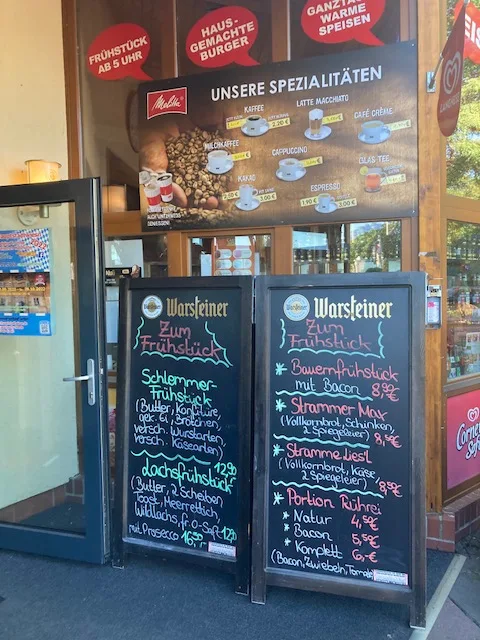 FRÜHSTÜCK
AB 5 UHR
HAUS-
GEMACHTE
BURGER
GANZTAGS
WARME
SPEISEN
Melitta
UNSERE SPEZIALITÄTEN
KAFFEE
2.20 €
LATTE MACCHIATO
CAFÉ CRÈME
MILCHKAFFEE
CAPPUCCINO
GLAS TEE
KAKAO
ESPRESSO
1.90 €
3.00 €
AUCH UNTERWEGS
GENIESSEN!
Warsteiner
Zum
Frühstück
Schlemmer-
Frühstück
(Butter, Konfitüre,
gek. Ei, Brötchen,
versch. Wurstarten,
versch. Käsearten)
12,90
Lachsfrühstück
(Butter, 2 Scheiben
Toast, Meerrettich,
Wildlachs, fr. O-Saft
mit Prosecco 16,50
Warsteiner
Zum
Frühstück
* Bauernfrühstück
mit Bacon 8,90€
* Strammer Max
(Vollkornbrot, Schinken,
2 Spiegeleier) 8,50€
* Stramme Liesl
(Vollkornbrot, Käse,
2 Spiegeleier) 8,50€
* Portion Rührei
* Natur 4,50€
* Bacon 5,50€
* Komplett 6,-€
(Bacon, Zwiebeln, Tomate)